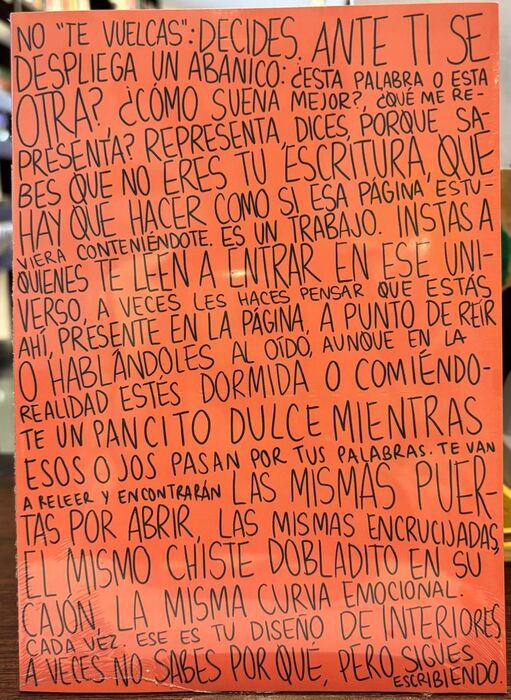 NO "TE VUELCAS": DECIDES. ANTE TI SE
DESPLIEGA UN ABANICO: ¿ESTA PALABRA O ESTA
OTRA?, ¿CÓMO SUENA MEJOR?, ¿QUÉ ME RE-
PRESENTA? REPRESENTA, DICES, PORQUE SA-
BES QUE NO ERES TU ESCRITURA, QUE
HAY QUE HACER COMO SI ESA PÁGINA ESTU-
VIERA CONTENIÉNDOTE. ES UN TRABAJO. INSTAS A
QUIENES TE LEEN A ENTRAR EN ESE UNI-
VERSO, A VECES LES HACES PENSAR QUE ESTÁS
AHÍ, PRESENTE EN LA PÁGINA, A PUNTO DE REÍR
O HABLÁNDOLES AL OÍDO, AUNQUE EN LA
REALIDAD ESTÉS DORMIDA O COMIÉNDO-
TE UN PANCITO DULCE MIENTRAS
ESOS OJOS PASAN POR TUS PALABRAS. TE VAN
A RELEER Y ENCONTRARÁN LAS MISMAS PUER-
TAS POR ABRIR, LAS MISMAS ENCRUCIJADAS,
EL MISMO CHISTE DOBLADITO EN SU
CAJÓN, LA MISMA CURVA EMOCIONAL.
CADA VEZ. ESE ES TU DISEÑO DE INTERIORES.
A VECES NO SABES POR QUÉ, PERO SIGUES
ESCRIBIENDO.